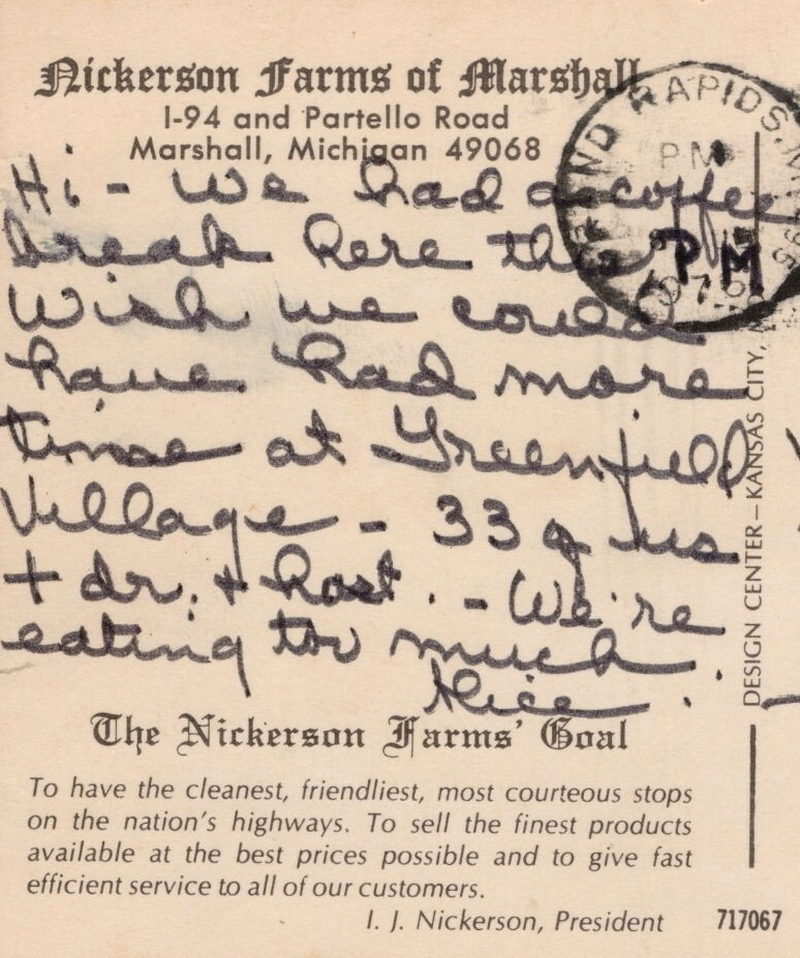 Nickerson Farms of Marshall
I-94 and Partello Road
Marshall, Michigan 49068
GRAND RAPIDS, M
PM
Hi - We had a coffee
break here this PM
Wish we could
have had more
time at Greenfield
Village - 33 of us
+ dr. + host. - We're
eating too much
Alice.
DESIGN CENTER—KANSAS CITY,
The Nickerson Farms' Goal
To have the cleanest, friendliest, most courteous stops
on the nation's highways. To sell the finest products
available at the best prices possible and to give fast
efficient service to all of our customers.
I. J. Nickerson, President
717067